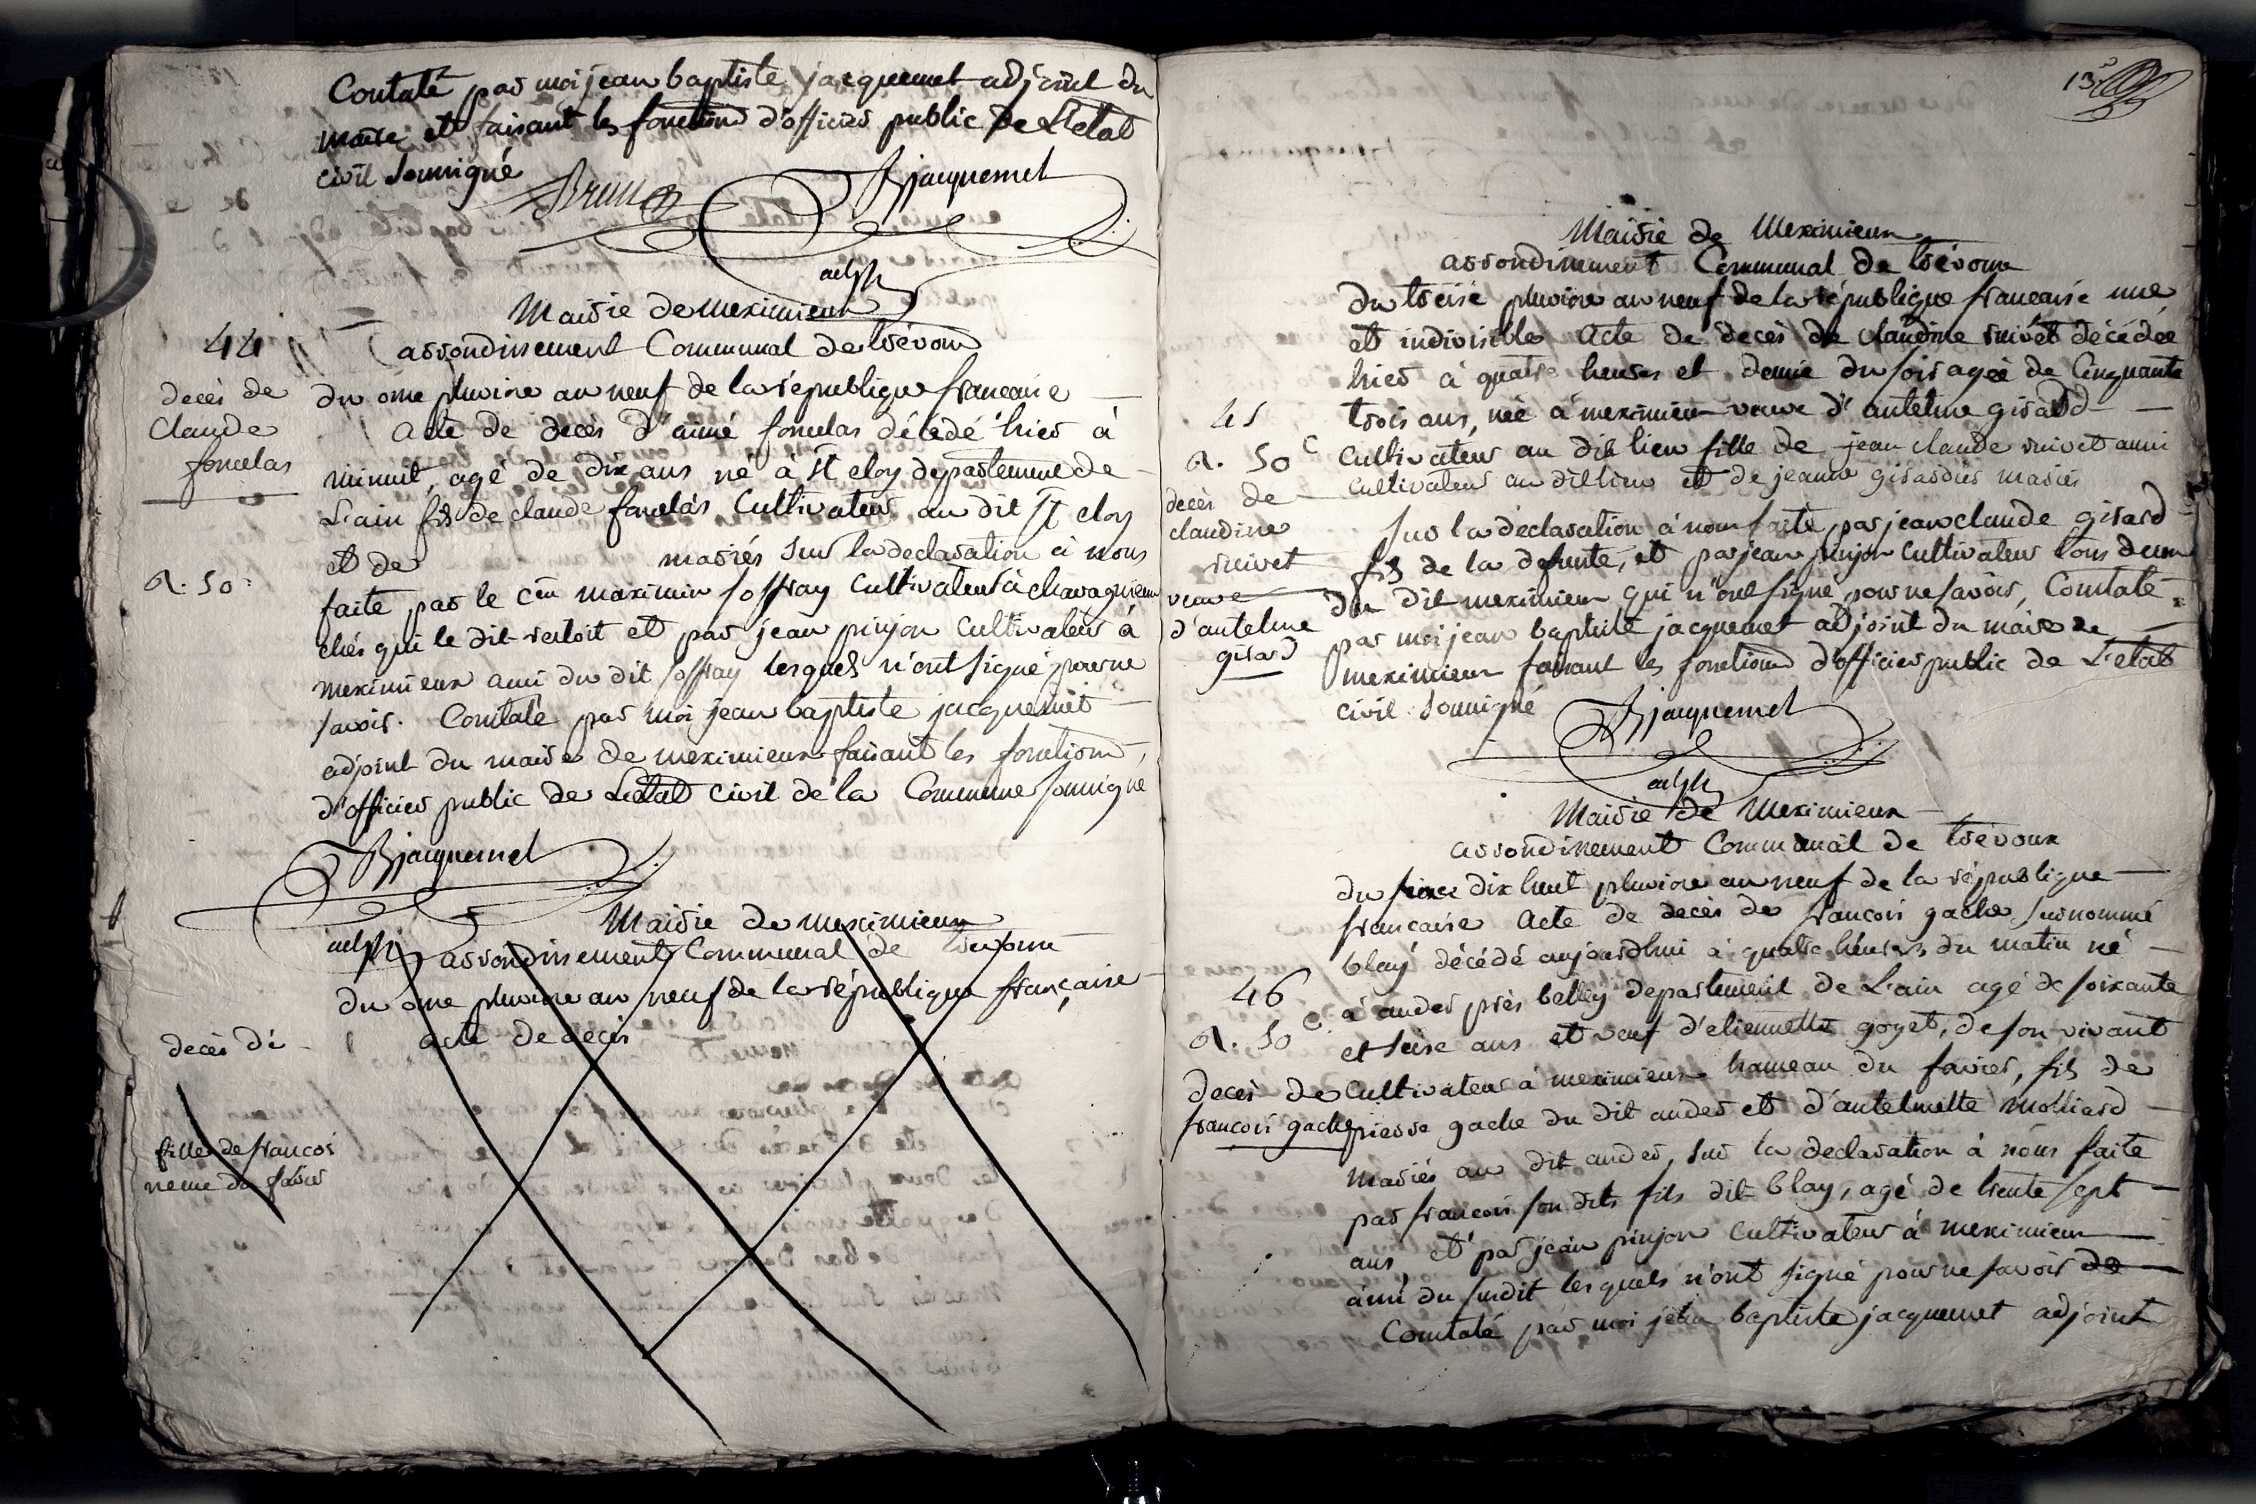 Contaté par moi jean baptiste jacquemet adjoint du
maire et faisant les fonctions d'officier public de L'etat
civil soussigné
Brun
Bjacquemet
adjt
Mairie de meximieux
44
arrondissement Communal de trévoux
decès de
du onze pluviose an neuf de la république francaise
Claude
acte de decès d'aimé foncelas décédé hier à
foncelas
minuit, agé de dix ans né à st eloy departement de
L'ain fils de claude foncelas Cultivateur au dit st eloy
et de mariés sur la declaration à nous
a. 50c
faite par le cen maximin soffray cultivateur à chavagnieux
chés qui le dit restoit et par jean pinjon cultivateur à
meximieux ami du dit soffray lesquels n'ont signé pour ne
savoir. Contaté par moi jean baptiste jacquemet
adjoint du maire de meximieux faisant les fonctions
d'officier public de L'etat civil de la Commune soussigné
Bjacquemet
adjt
Mairie de meximieux
arrondissement Communal de trevoux
du onze pluviose an neuf de la république française
decès de
acte de decès
fille de francois
neme du favier
13e
Mairie de Meximieux
arrondissement Communal de trévoux
du treise pluviose an neuf de la république francaise une
et indivisible acte de decès de claudine ruivet décédée
hier à quatre heures et demie du soir agée de Cinquante
45
trois ans, née à meximieux veuve d'antelme girard
a. 50c
cultivateur au dit lieu fille de jean claude ruivet aussi
cultivateur au dit lieu et de jeanne girardier mariés
decès de
claudine
ruivet
veuve
d'antelme
girard
sur la déclaration à nous faite par jean claude girard
fils de la defunte, et par jean pinjon cultivateur tous deux
du dit meximieux qui n'ont signé pour ne savoir, Contaté
par moi jean baptiste jacquemet adjoint du maire de
meximieux faisant les fonctions d'officier public de L'etat
civil soussigné
Bjacquemet
adjt
Mairie de Meximieux
arrondissement Communal de trévoux
du dix huit pluviose an neuf de la république
francaise acte de decès de francois gache surnommé
blay décédé aujourdhui à quatre heures du matin né
46
à ander près belley departement de L'ain agé de soixante
a. 50c
et seise ans et veuf d'etiennette goyet, de son vivant
decès de
cultivateur à meximieux hameau du favier, fils de
francois gache
pierre gache du dit ander et d'antelmette molliard
mariés au dit ander, sur la declaration à nous faite
par francois son dits fils dit blay, agé de trente sept
ans, et par jean pinjon cultivateur à meximieux
ami du susdit lesquels n'ont signé pour ne savoir de
Contaté par moi jean baptiste jacquemet adjoint